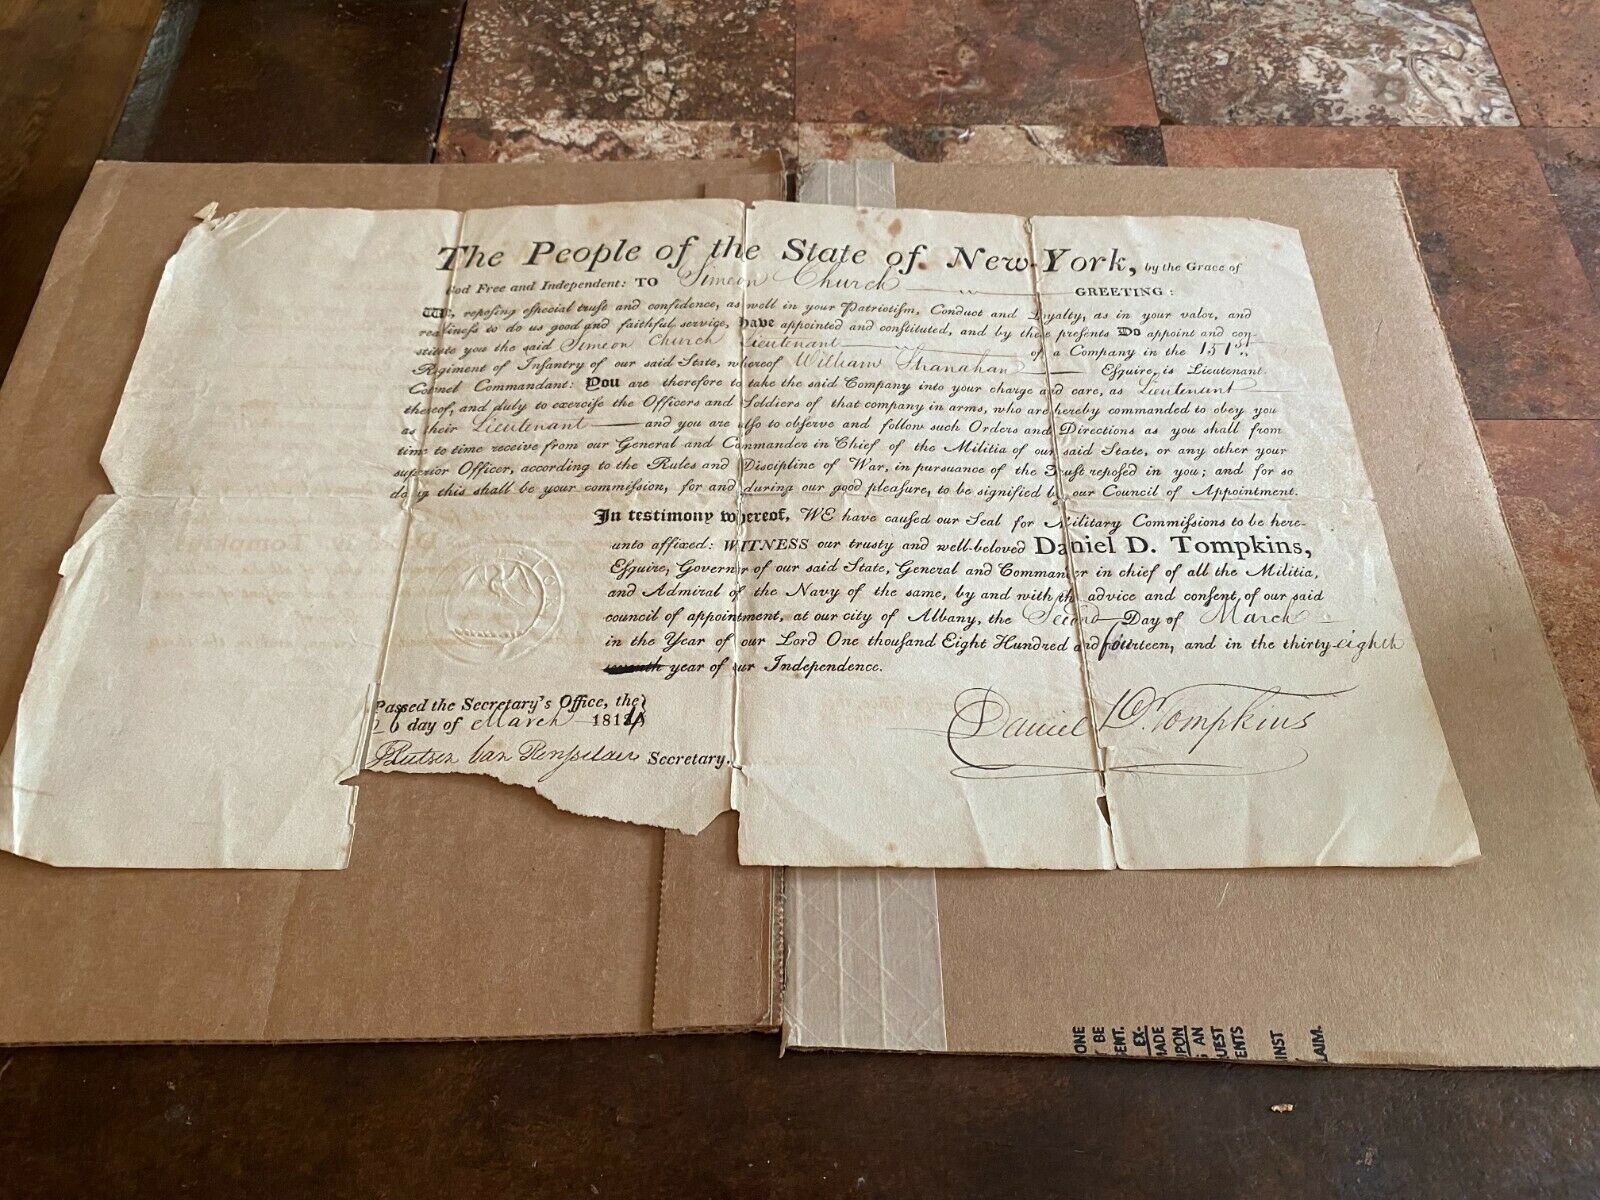 The People of the State of New-York, by the Grace of
God Free and Independent: TO Simeon Church GREETING:
WE, reposing especial trust and confidence, as well in your Patriotism, Conduct and Loyalty, as in your valor, and
readiness to do us good and faithful service, Have appointed and constituted, and by these presents Do appoint and con-
stitute you the said Simeon Church Lieutenant of a Company in the 151st
Regiment of Infantry of our said State, whereof William Stranahan Esquire, is Lieutenant.
Colonel Commandant: You are therefore to take the said Company into your charge and care, as Lieutenant
thereof, and duly to exercise the Officers and Soldiers of that company in arms, who are hereby commanded to obey you
as their Lieutenant and you are also to observe and follow such Orders and Directions as you shall from
time to time receive from our General and Commander in Chief of the Militia of our said State, or any other your
superior Officer, according to the Rules and Discipline of War, in pursuance of the Trust reposed in you; and for so
doing this shall be your commission, for and during our good pleasure, to be signified by our Council of Appointment.
In testimony whereof, WE have caused our Seal for Military Commissions to be here-
unto affixed: WITNESS our trusty and well-beloved Daniel D. Tompkins,
Esquire, Governor of our said State, General and Commander in chief of all the Militia,
and Admiral of the Navy of the same, by and with the advice and consent, of our said
council of appointment, at our city of Albany, the Second Day of March
in the Year of our Lord One thousand Eight Hundred and fourteen, and in the thirty-eighth
year of our Independence.
Passed the Secretary's Office, the
26 day of March 1814
Daniel D. Tompkins
Rutsen Van Rensselaer Secretary.
ONE
BE
ENT.
EX-
ADE
PON
AN
UEST
ENTS
INST
LAIM.